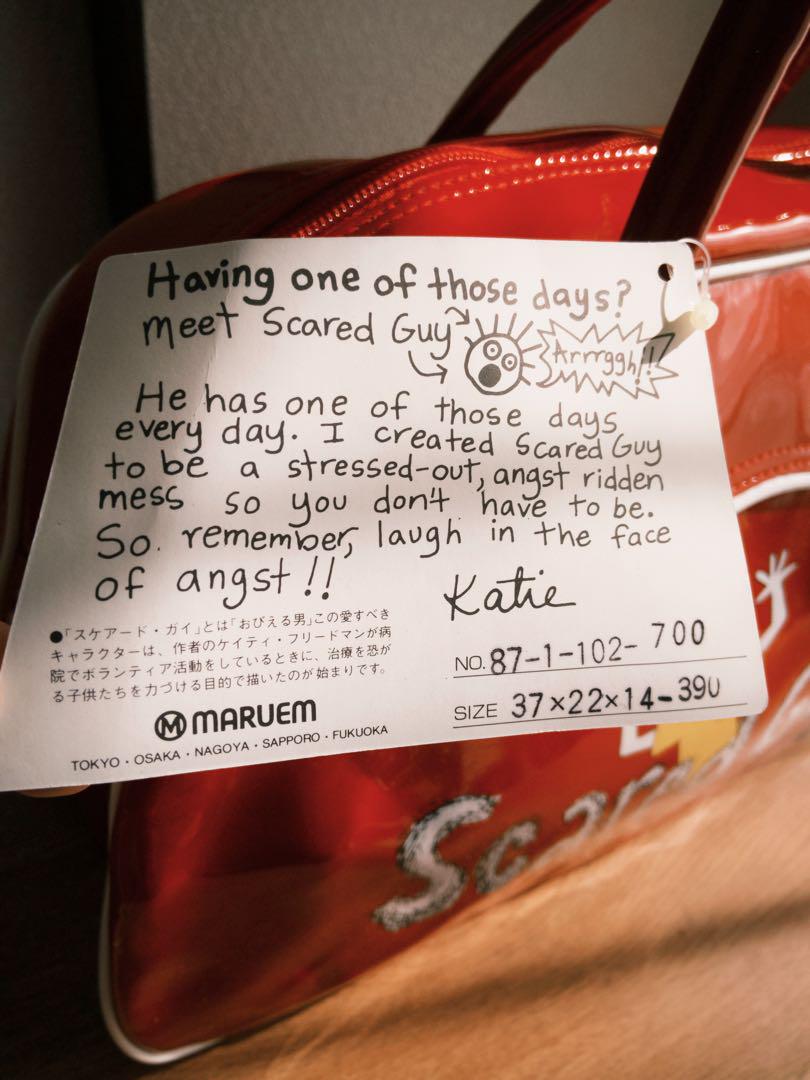 Having one of those days?
meet Scared Guy
Arrrggh!!
He has one of those days
every day. I created Scared Guy
to be a stressed-out, angst ridden
mess so you don't have to be.
So. remember, laugh in the face
of angst!!
Katie
●「スケアード・ガイ」とは「おびえる男」この愛すべき
キャラクターは、作者のケイティ・フリードマンが病
院でボランティア活動をしているときに、治療を恐が
る子供たちを力づける目的で描いたのが始まりです。
NO. 87-1-102-700
SIZE 37×22×14-390
M MARUEM
TOKYO・OSAKA・NAGOYA・SAPPORO・FUKUOKA
Scared